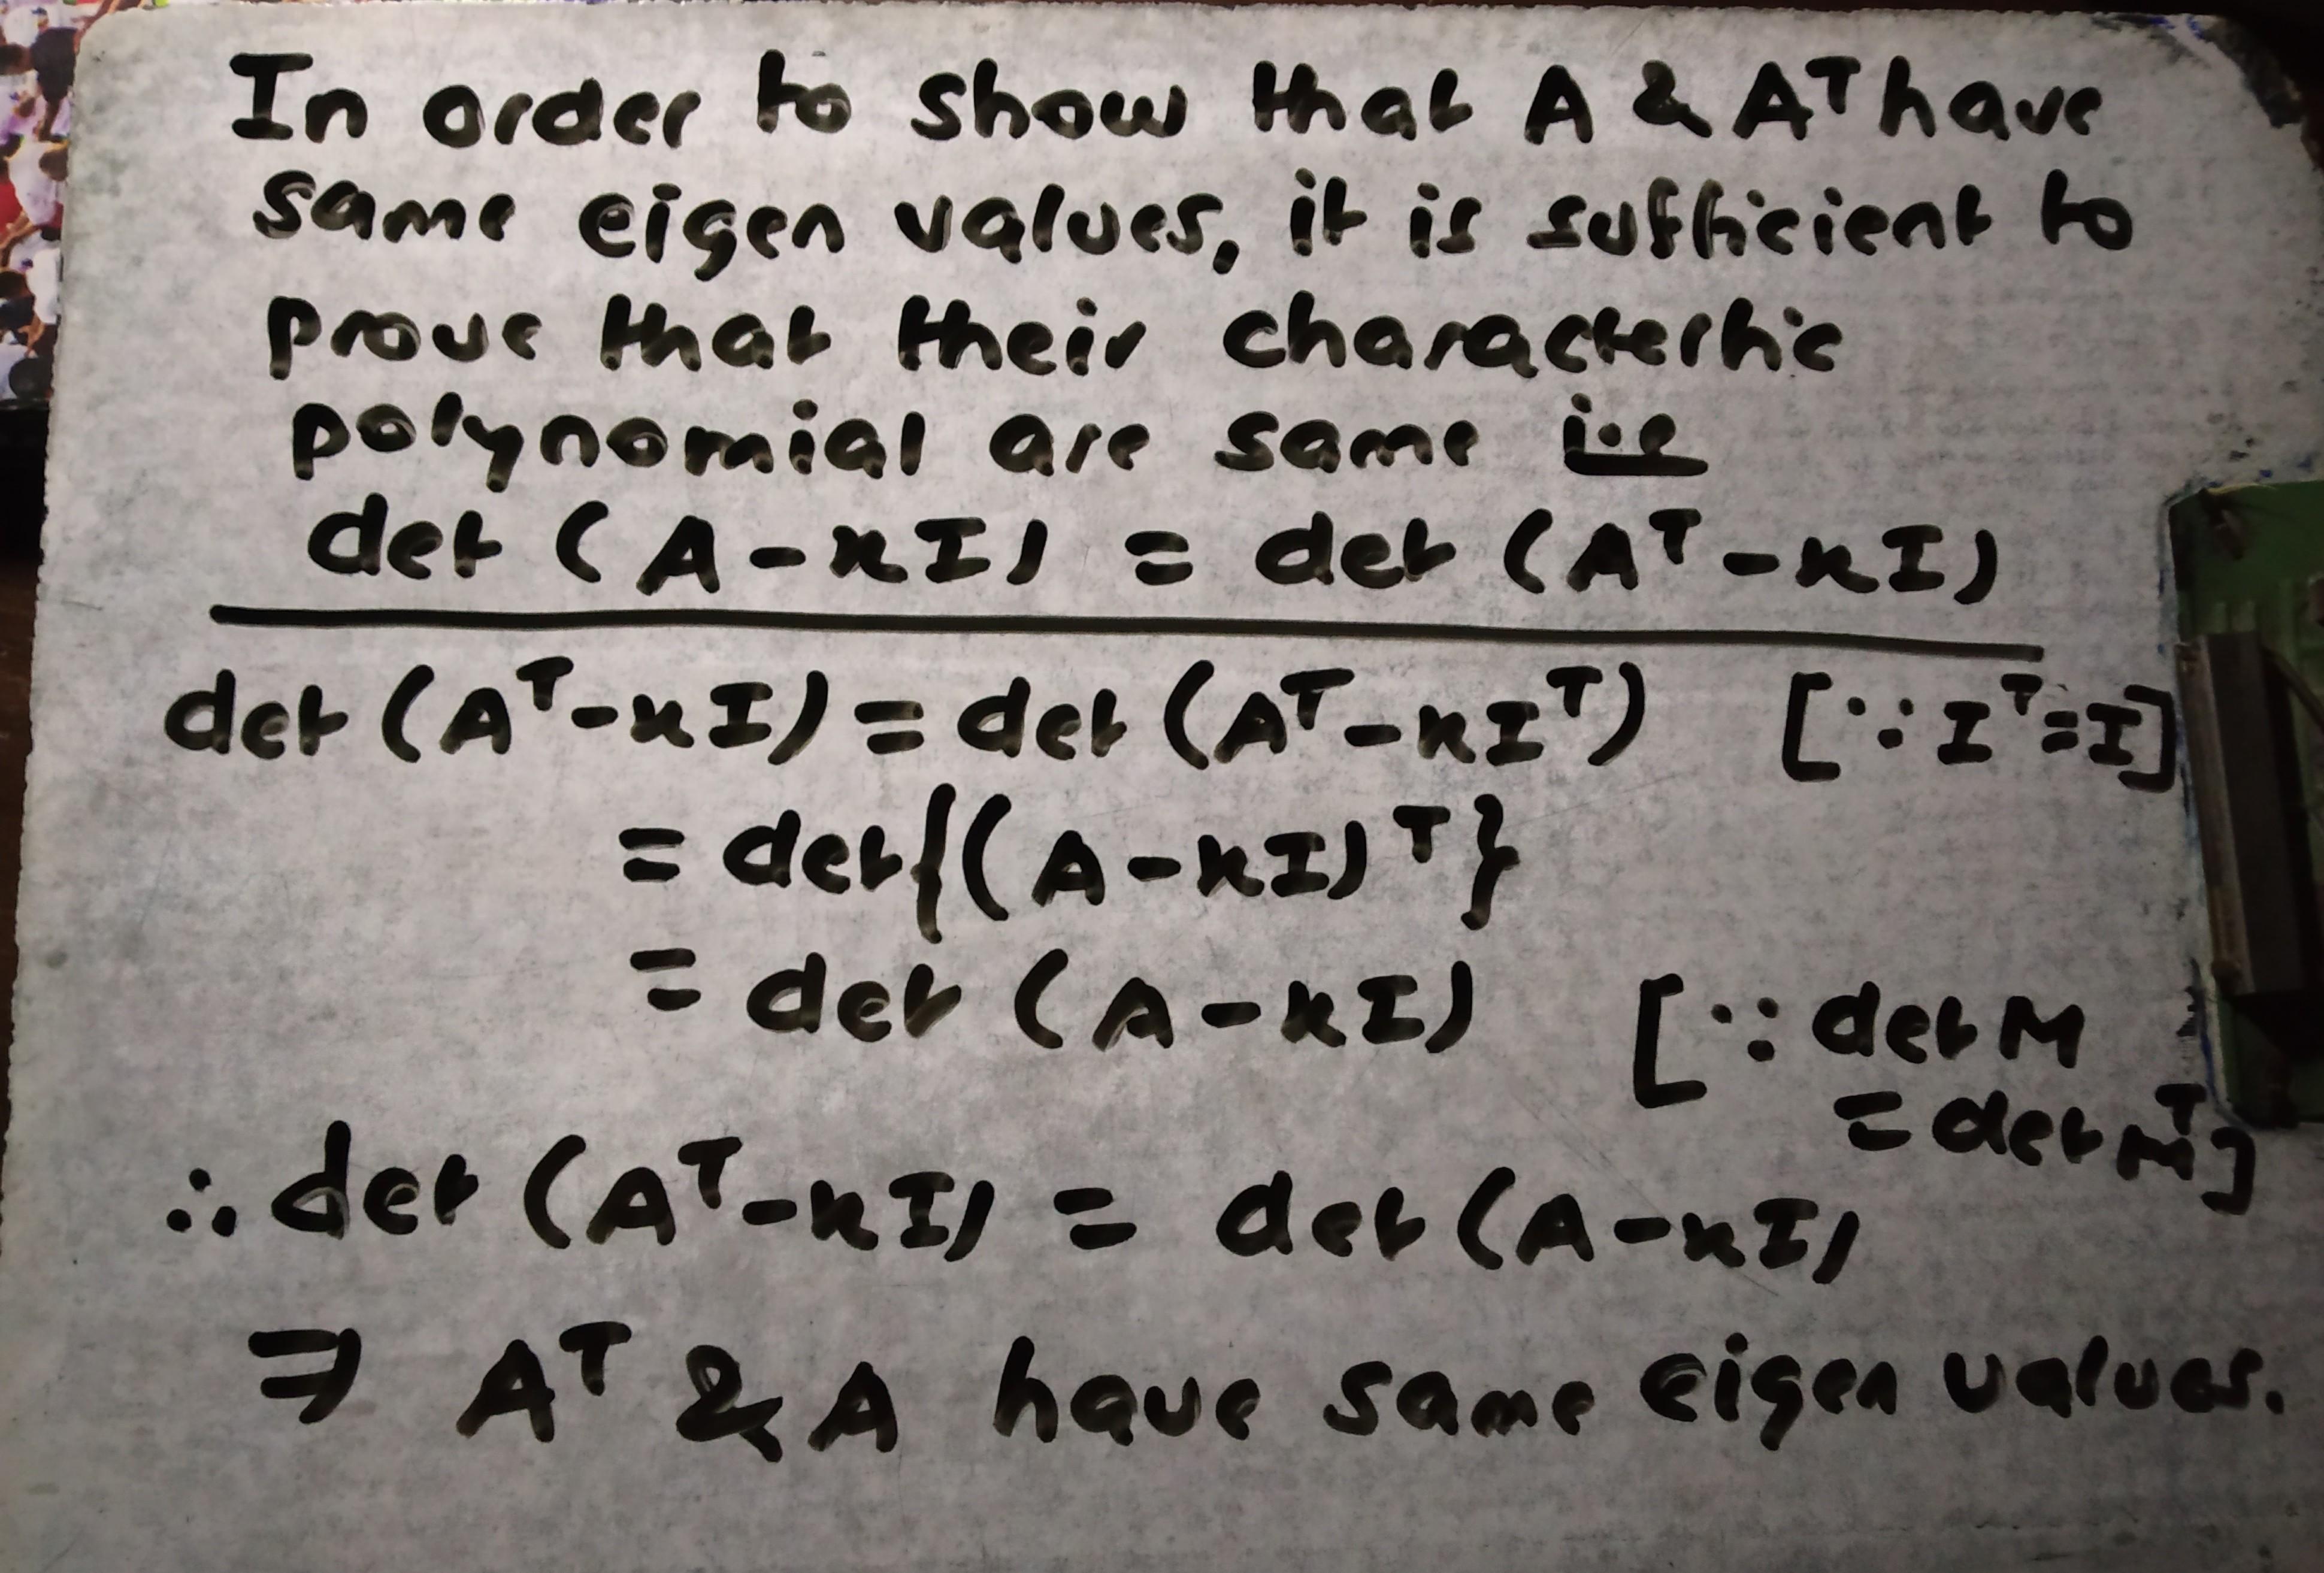 In order to show that A & Aᵀ have
same eigen values, it is sufficient to
prove that their characterstic
polynomial are same i.e
det (A-xI) = det (Aᵀ-xI)
det (Aᵀ-xI) = det (Aᵀ-xIᵀ) [∵ Iᵀ=I]
= det{(A-xI)ᵀ}
= det (A-xI) [∵ det M
= det Mᵀ]
∴ det (Aᵀ-xI) = det (A-xI)
⇒ Aᵀ & A have same eigen values.